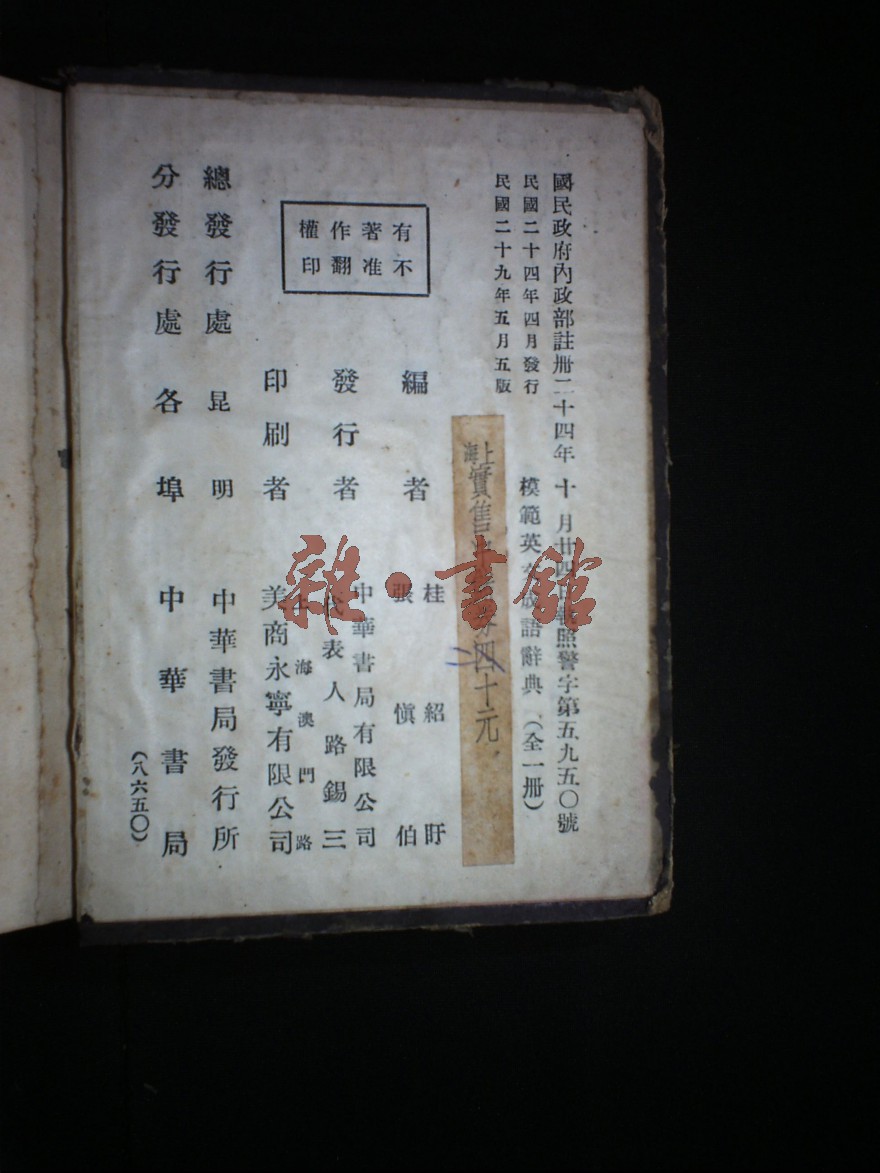 國民政府內政部註冊二十四年十月廿四日執照警字第五九五〇號
民國二十四年四月發行
民國二十九年五月五版
模範英文成語辭典(全一冊)
上海
實售 四十元
有不
著准
作翻
權印
編者
桂紹盱
張愼伯
發行者
中華書局有限公司
代表人路錫三
印刷者
上海澳門路
美商永寧有限公司
總發行處 昆明 中華書局發行所
分發行處 各埠 中華書局
(八六五〇)
雜·書館